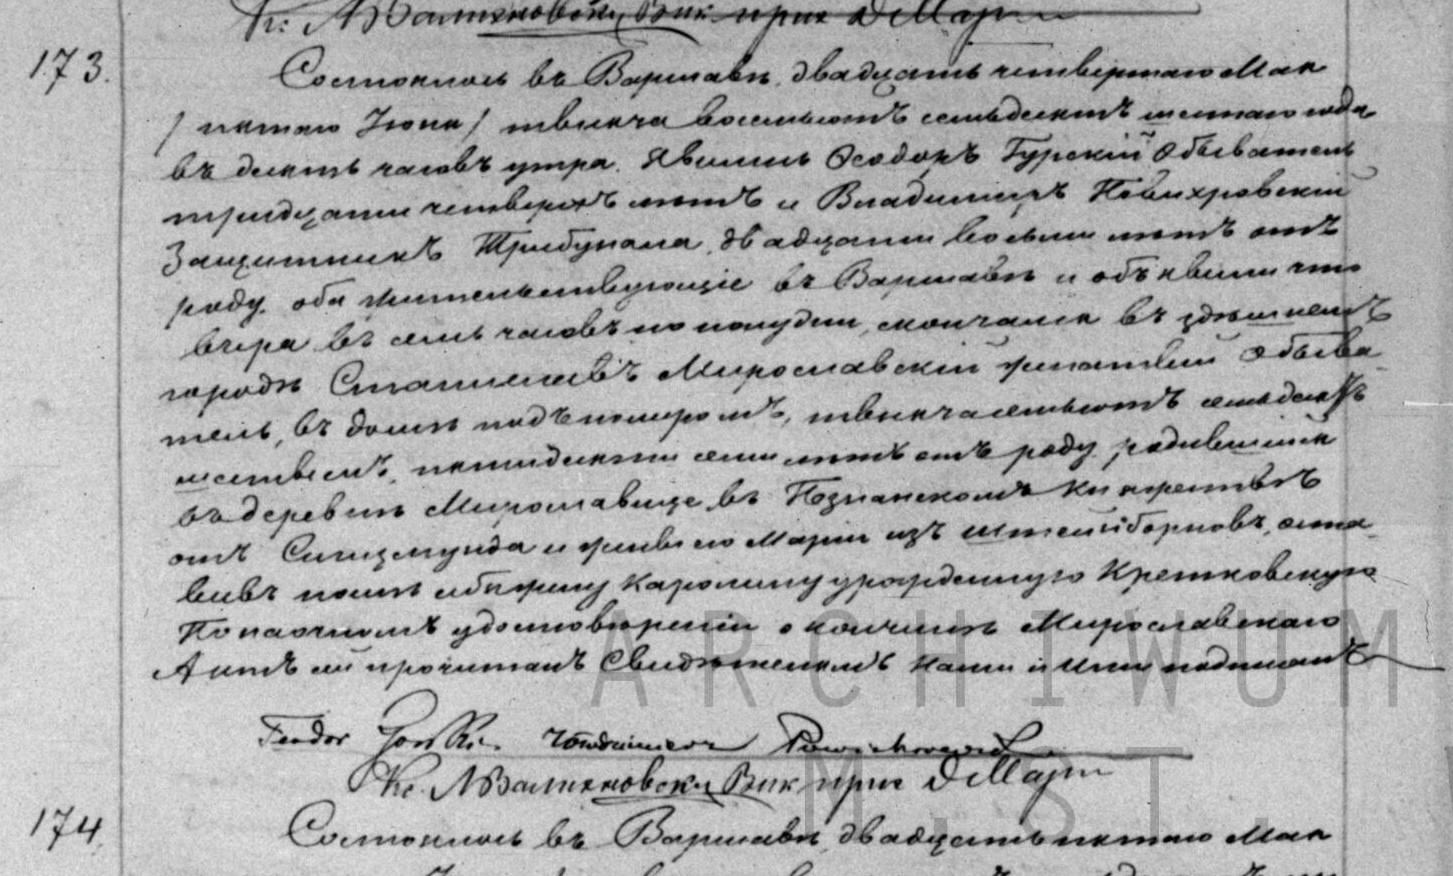 Кс. А Валяновски, Вик при д Март
173.
Состоялось въ Варшавѣ, двадцать четвертаго Мая
/ пятаго Іюня / тысяча восемьсотъ семьдесятъ шестаго года
въ десять часовъ утра. Явились Ѳеодоръ Гурскій Обыватель
тридцати четверехъ лѣтъ и Владимиръ
Защитникъ Трибунала, двадцати восьми лѣтъ отъ
роду, оба жительствующіе въ Варшавѣ и объявили что
вчера въ семь часовъ по полудни, скончался въ здѣшнемъ
городѣ Станиславъ Мирославскій женатый Обыва-
тель, въ домѣ подъ номеромъ, тысяча семьсотъ семьдесятъ
шестымъ, пятидесяти семи лѣтъ отъ роду, родившійся
въ деревнѣ Мирославице, въ Познанскомъ Княжествѣ
отъ Сигизмунда и жены его Маріи изъ Штейнборновъ, оста-
вивъ послѣ себя жену Каролину урожденную Кретковскую
По наочномъ удостовѣреніи о кончинѣ Мирославскаго
Актъ сей прочитанъ Свидѣтелямъ Нами и ими подписанъ
Teodor Gorski. Włodzimierz
Кс. А Валяновски, Вик при д Март
ARCHIWUM
M. ST.
174.
Состоялось въ Варшавѣ, двадцать пятаго Мая